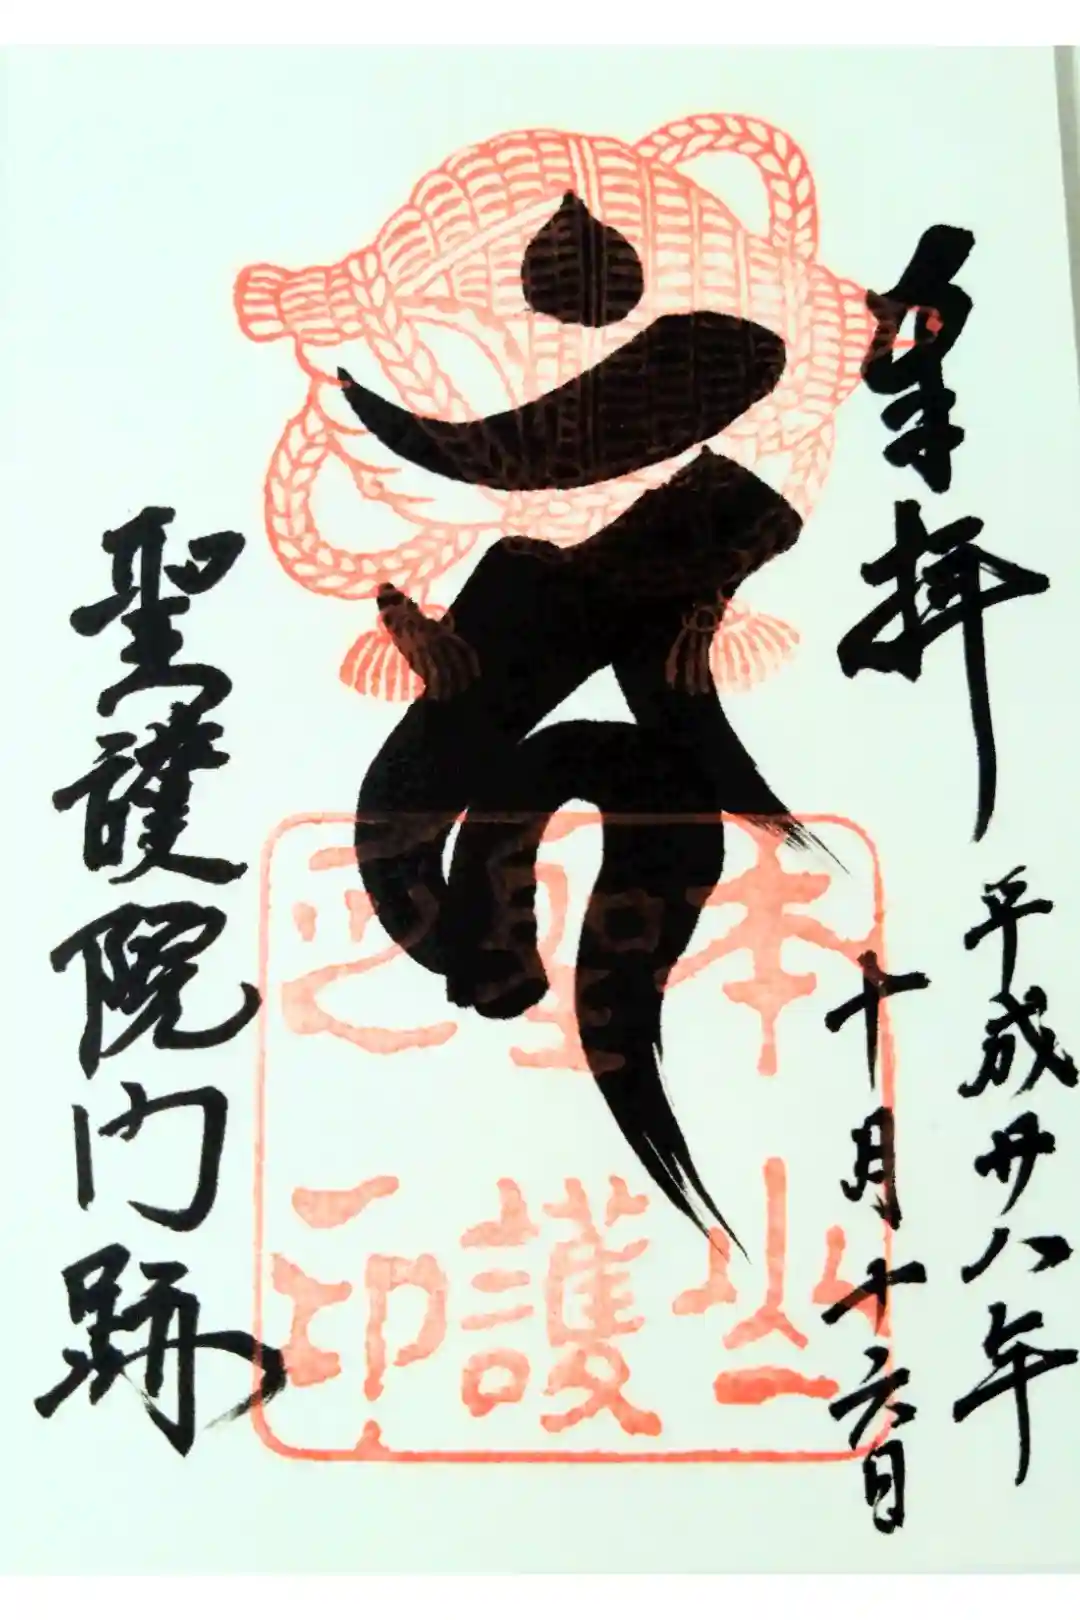 奉拝
平成廿八年
十月十六日
本山
聖護
印
聖護院門跡